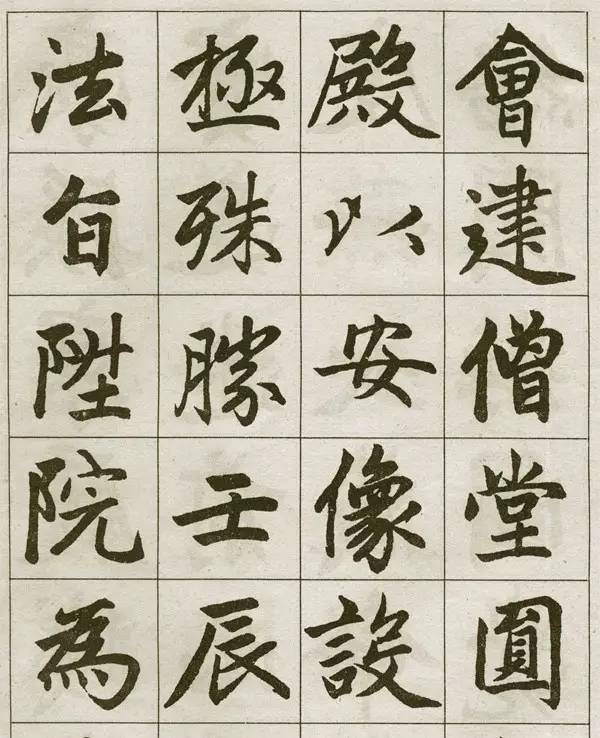 會建僧堂圓
殿以安像設
極殊勝壬辰
法旨陞院為